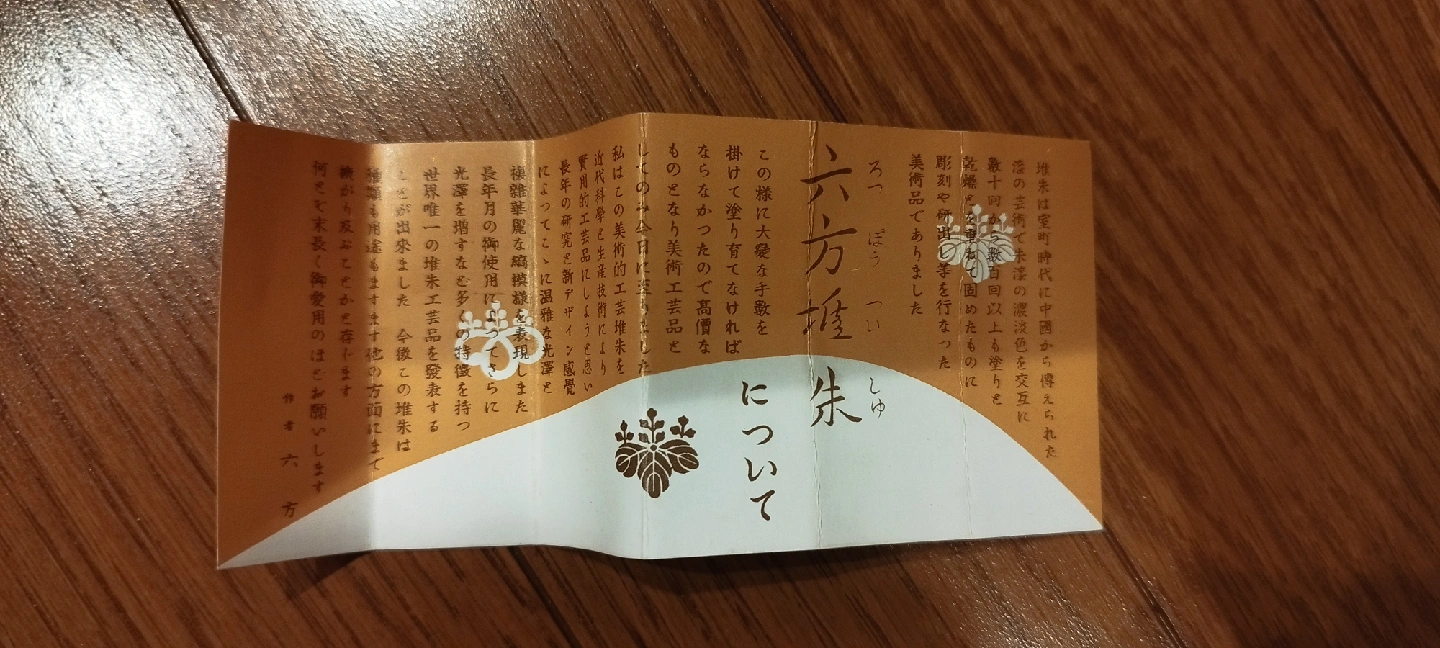 堆朱は室町時代に中國から傳えられた
漆の芸術で朱漆の濃淡色を交互に
数十回から数百回以上も塗りと
乾燥とを重ねて固めたものに
彫刻や研出し等を行なった
美術品でありました
六方堆朱
ろっぽうついしゅ
について
この様に大変な手数を
掛けて塗り育てなければ
ならなかつたので高價な
ものとなり美術工芸品と
してのみ今日に至りました
私はこの美術的工芸堆朱を
近代科學と生産技術により
實用的工芸品にしようと思い
長年の研究と新デザイン感覺
によつてこゝに温雅な光澤と
複雑華麗な縞模様を表現しまた
長年月の御使用によってさらに
光澤を増すなど多くの特徴を持つ
世界唯一の堆朱工芸品を發表する
ことが出來ました 今後この堆朱は
種類も用途もますます他の方面にまで
擴がり及ぶことかと存じます
何とぞ末長く御愛用のほどお願いします
作者 六方